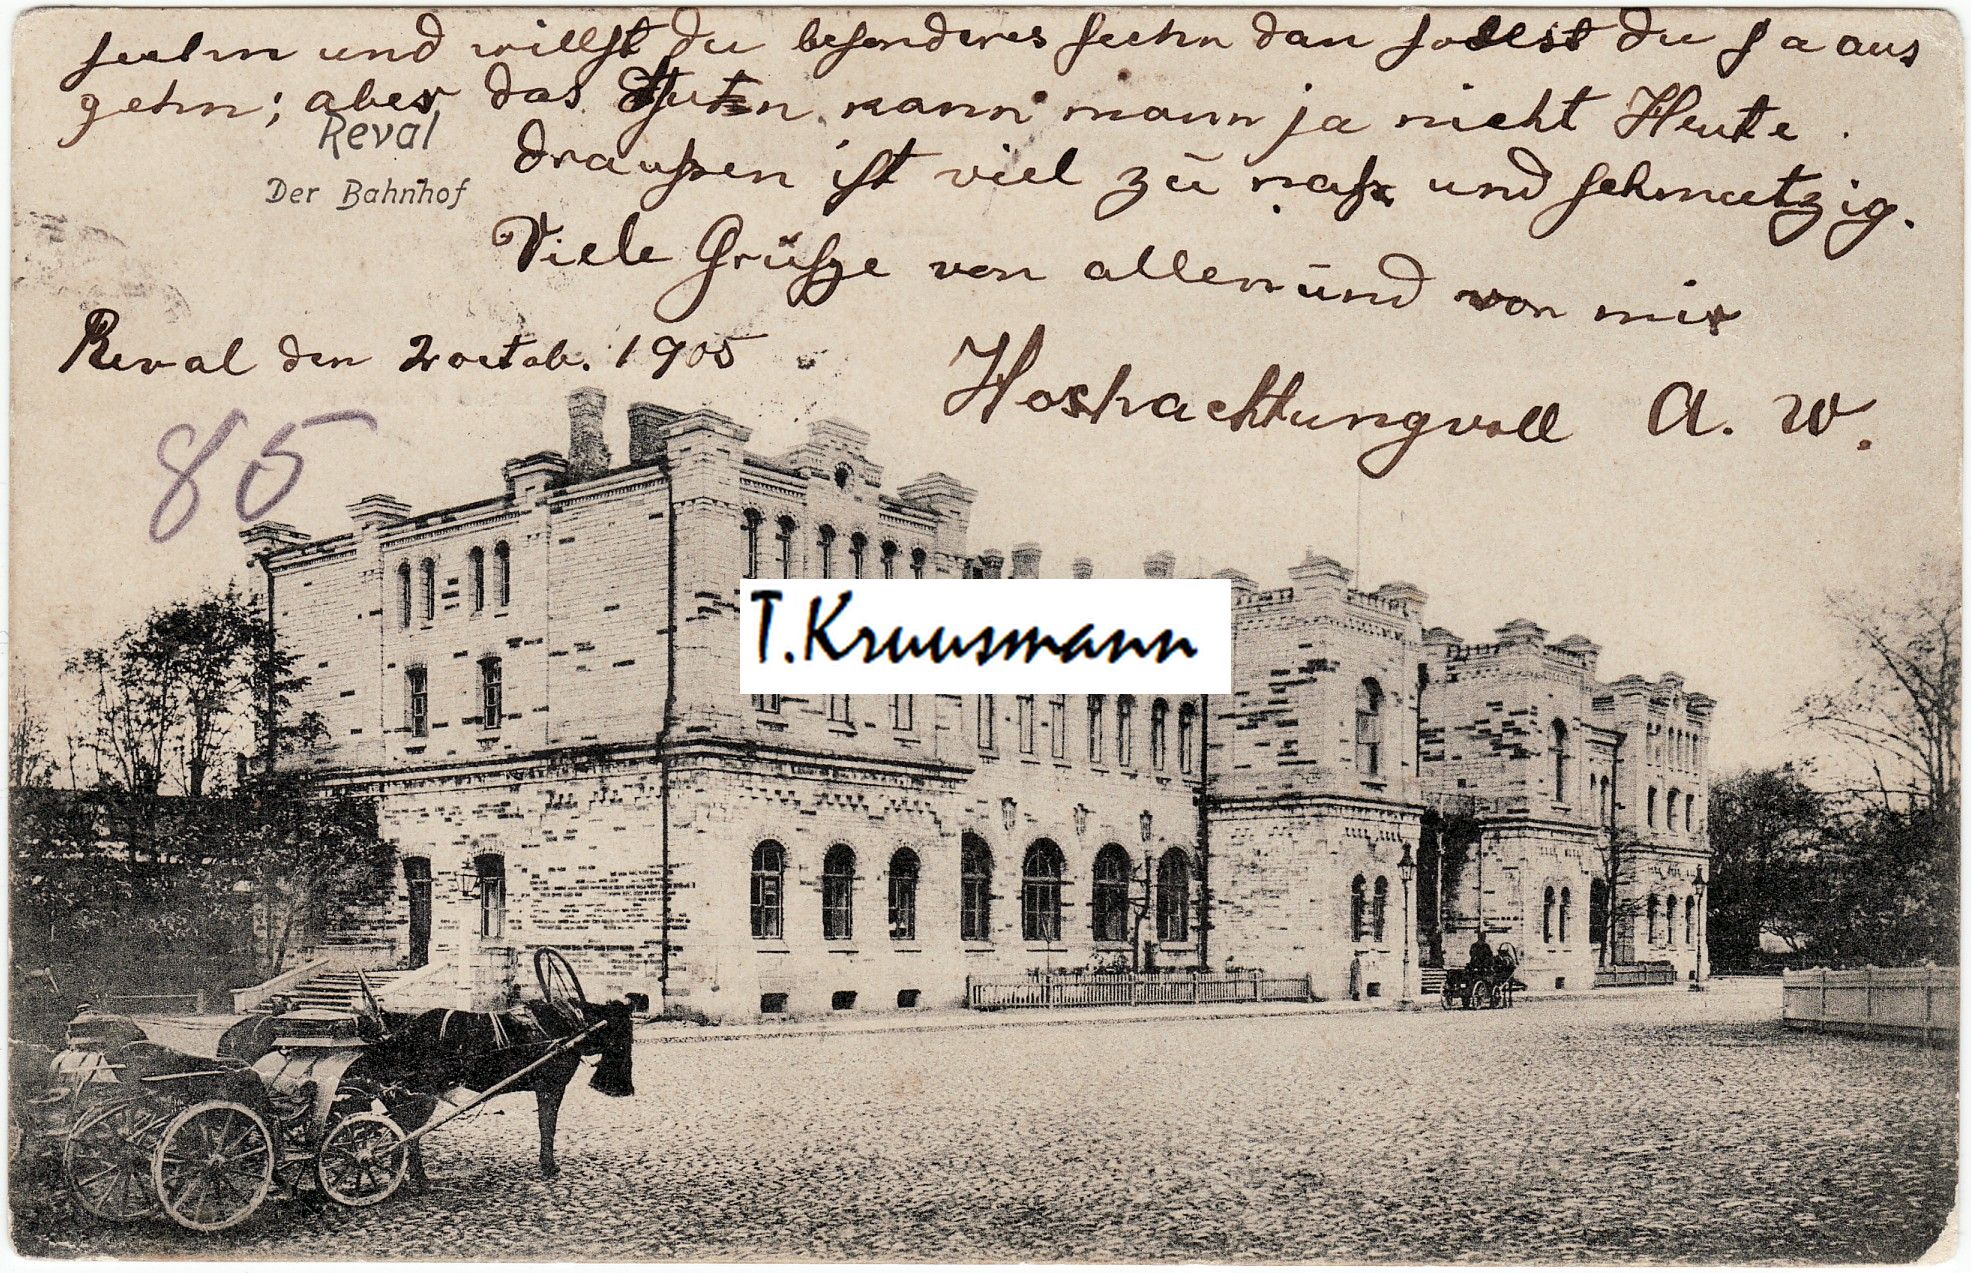 seehn und willst du besonderes seehn dan sollst du ja aus
gehn; aber das thuhn kann mann ja nicht Heute.
Reval
Der Bahnhof
draußen ist viel zu naß und schmutzig.
Viele Grüße von allen und von mir
Reval den 2 octob. 1905
Hoshachtungvoll A. W.
85
T.Kruusmann